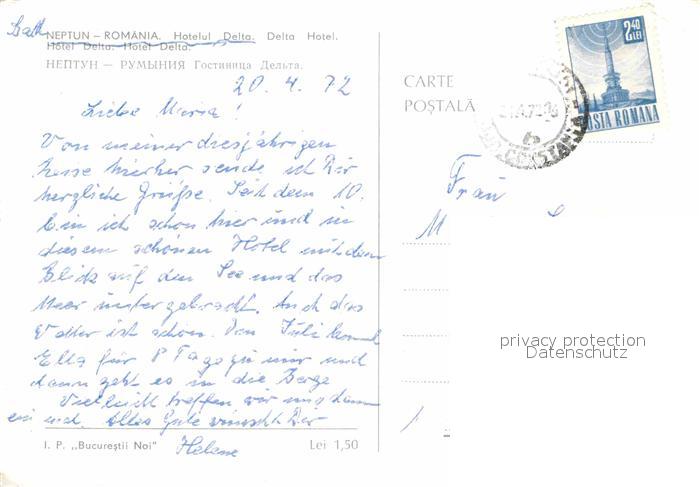 NEPTUN – ROMÂNIA. Hotelul Delta. Delta Hotel.
Hôtel Delta. Hotel Delta.
НЕПТУН — РУМЫНИЯ Гостиница Дельта.
20. 4. 72
Liebe Maria!
Von meiner diesjährigen
Reise hierher sende ich Dir
herzliche Grüße. Seit dem 10.
bin ich schon hier und in
diesem schönen Hotel mit dem
Blick auf den See und das
Meer untergebracht. Auch das
Wetter ist schön. Den Juli kommt
Ella für 8 Tage zu mir und
dann geht es in die Berge
Vielleicht treffen wir uns dann
ein mal. Alles Gute wünscht Dir
Helene
I. P. „Bucureștii Noi"
Lei 1,50
CARTE
POȘTALĂ
2,40
LEI
POSTA ROMANA
CONSTANTA
6
Frau
M
privacy protection
Datenschutz